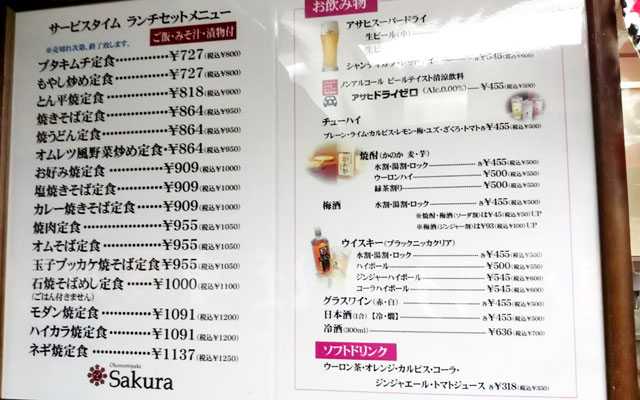 サービスタイム ランチセットメニュー
※売切れ次第、終了致します。
ご飯・みそ汁・漬物付
ブタキムチ定食…………¥727(税込¥800)
もやし炒め定食…………¥727(税込¥800)
とん平焼定食……………¥818(税込¥900)
焼きそば定食……………¥864(税込¥950)
焼うどん定食……………¥864(税込¥950)
オムレツ風野菜炒め定食…¥864(税込¥950)
お好み焼定食……………¥909(税込¥1000)
塩焼きそば定食…………¥909(税込¥1000)
カレー焼きそば定食……¥909(税込¥1000)
焼肉定食…………………¥955(税込¥1050)
オムそば定食……………¥955(税込¥1050)
玉子ブッカケ焼そば定食…¥955(税込¥1050)
石焼そばめし定食………¥1000(税込¥1100)
(ごはん付きません)
モダン焼定食……………¥1091(税込¥1200)
ハイカラ焼定食…………¥1091(税込¥1200)
ネギ焼定食………………¥1137(税込¥1250)
Okonomiyaki
Sakura
お飲み物
アサヒスーパードライ
生ビール(中)
生ビ
¥545(税込¥600)
ノンアルコール ビールテイスト清涼飲料
アサヒドライゼロ (Alc.0.00%)…¥455(税込¥500)
チューハイ
プレーン・ライム・カルピス・レモン・梅・ユズ・ざくろ・トマト 各¥455(税込¥500)
焼酎(かのか 麦・芋)
水割・湯割・ロック…………各¥455(税込¥500)
ウーロンハイ…………¥500(税込¥550)
緑茶割り…………¥500(税込¥550)
梅酒 水割・湯割・ロック…………各¥455(税込¥500)
※焼酎・梅酒(ソーダ割)は¥45(税込¥50)UP
※梅酒(ジンジャー割)は¥93(税込¥100)UP
ウイスキー(ブラックニッカクリア)
水割・湯割・ロック…………各¥455(税込¥500)
ハイボール…………¥500(税込¥550)
ジンジャーハイボール…………¥545(税込¥600)
コーラハイボール…………¥545(税込¥600)
グラスワイン(赤・白)…………各¥455(税込¥500)
日本酒(1合)【冷・燗】…………¥455(税込¥500)
冷酒(300ml)…………¥636(税込¥700)
ソフトドリンク
ウーロン茶・オレンジ・カルピス・コーラ・
ジンジャエール・トマトジュース 各¥318(税込¥350)